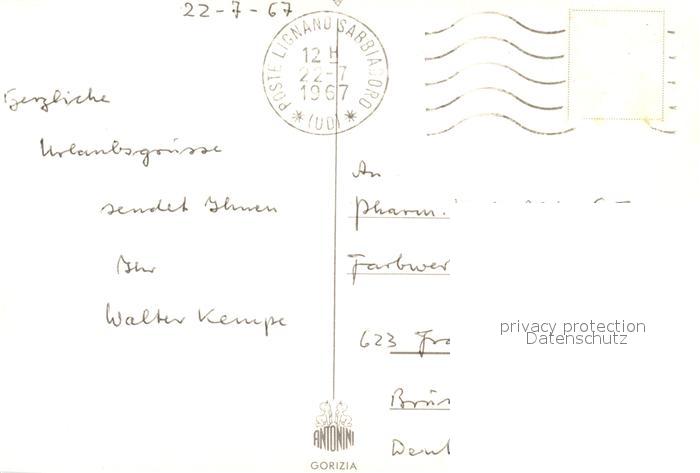 22-7-67
POSTE LIGNANO SABBIADORO
12 H
22-7
1967
* (UD) *
Herzliche
Urlaubsgrüsse
sendet Ihnen
Ihr
Walter Kempe
An
Pharm.
Farbwer
623 Fra
Brün
Deut
privacy protection
Datenschutz
ANTONINI
GORIZIA